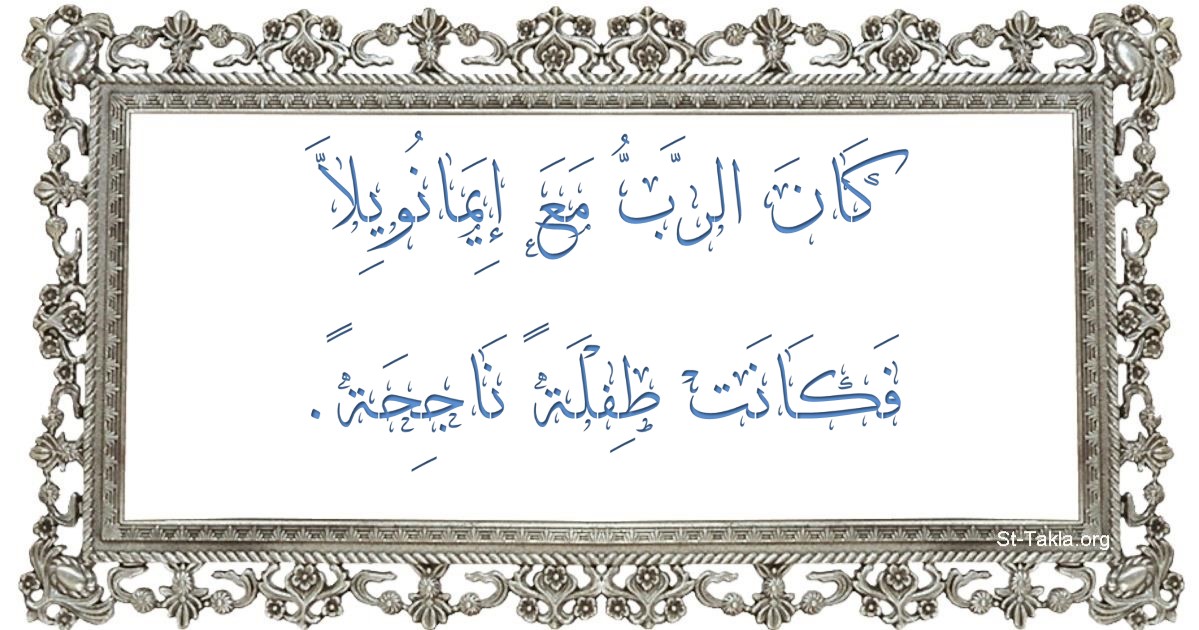 كَانَ الرَّبُّ مَعَ إِيَمانُويِلاَّ
فَكَانَت طِفْلَةً نَاجِحَةً.
St-Takla.org